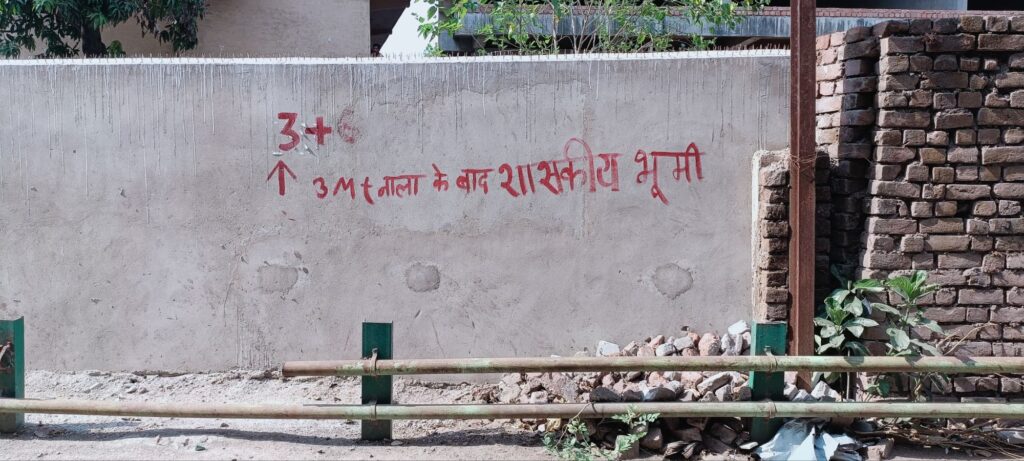 3+
↑ 3Mt नाला के बाद शासकीय भूमी